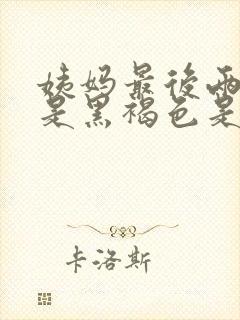 姨妈最后两
是黑褐色是
卡洛斯